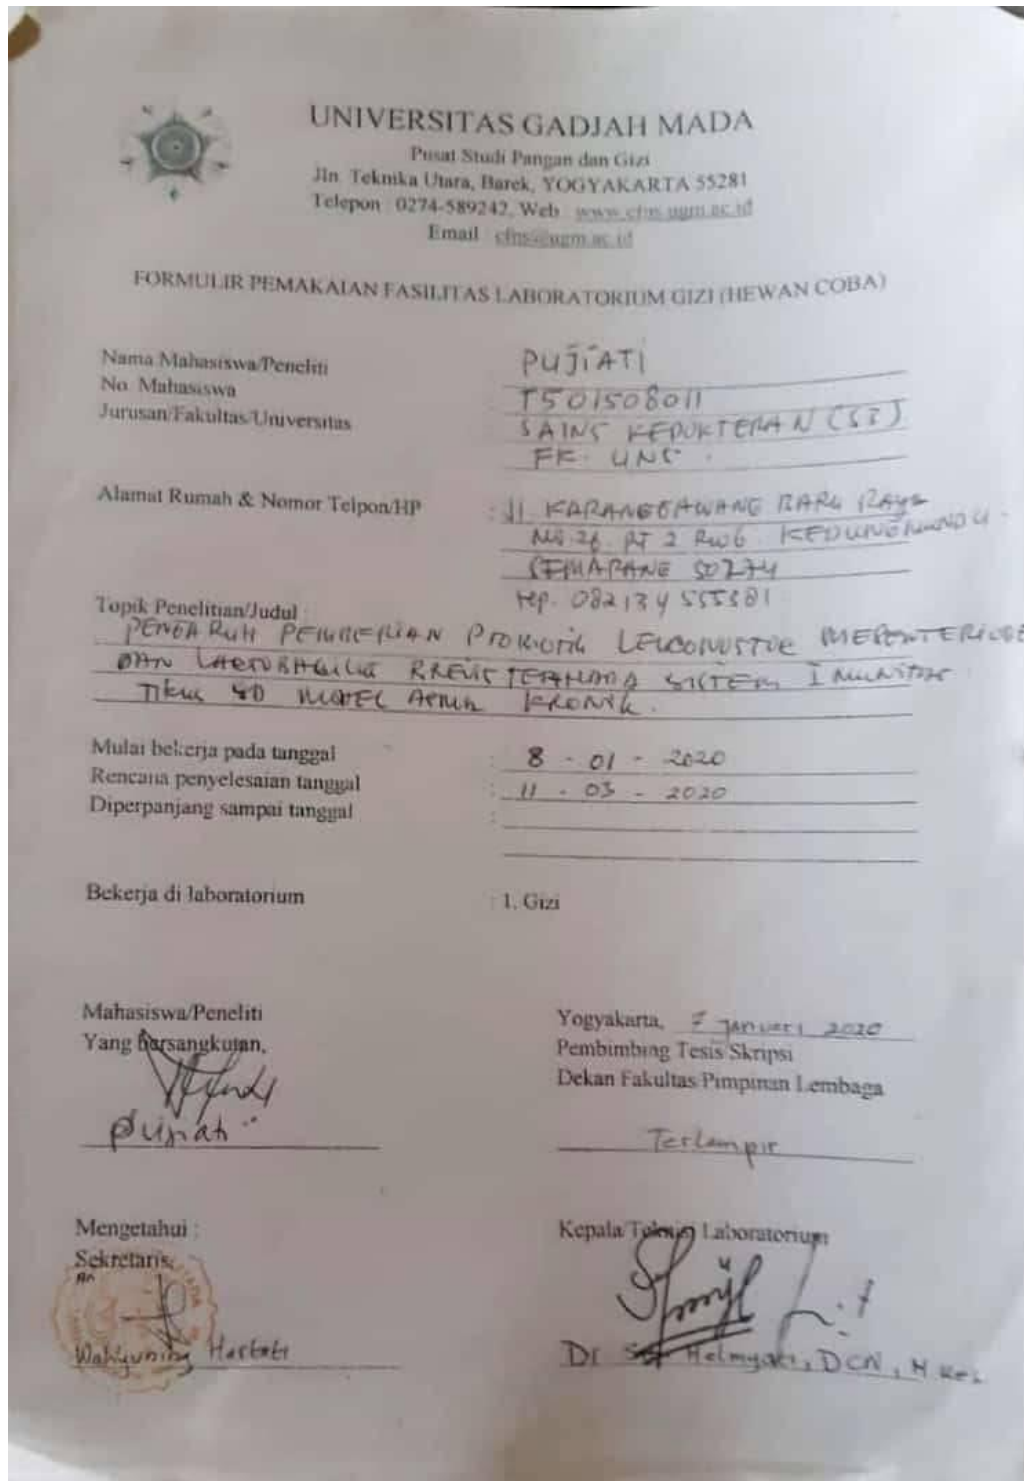 UNIVERSITAS GADJAH MADA
Pusat Studi Pangan dan Gizi
Jln. Teknika Utara, Barek, YOGYAKARTA 55281
Telepon : 0274-589242, Web : www.cfns.ugm.ac.id
Email : cfns@ugm.ac.id
FORMULIR PEMAKAIAN FASILITAS LABORATORIUM GIZI (HEWAN COBA)
Nama Mahasiswa/Peneliti PUJIATI
No. Mahasiswa : T501508011
Jurusan/Fakultas/Universitas SAINS KEDOKTERAN (S3)
FK. UNS.
Alamat Rumah & Nomor Telpon/HP : Jl. KARANGGAWANG BARU RAYA
No. 26 RT 2 RW 6 KEDUNGMUNDU
SEMARANG 50274
Tep. 082134 555381
Topik Penelitian/Judul :
PENGARUH PEMBERIAN PROBIOTIK
DAN BREVIS TERHADAP SISTEM IMUNITAS
TIKUS SD MODEL KRONIK.
Mulai bekerja pada tanggal : 8 - 01 - 2020
Rencana penyelesaian tanggal : 11 - 03 - 2020
Diperpanjang sampai tanggal :
Bekerja di laboratorium : 1. Gizi
Mahasiswa/Peneliti
Yang bersangkutan,
Pujiati
Yogyakarta, 7 Januari 2020
Pembimbing Tesis Skripsi
Dekan Fakultas Pimpinan Lembaga
Terlampir
Mengetahui :
Sekretaris,
An
Wahyuning Hastuti
Kepala/Teknisi Laboratorium
Dr Helmyati, DCN, M Kes